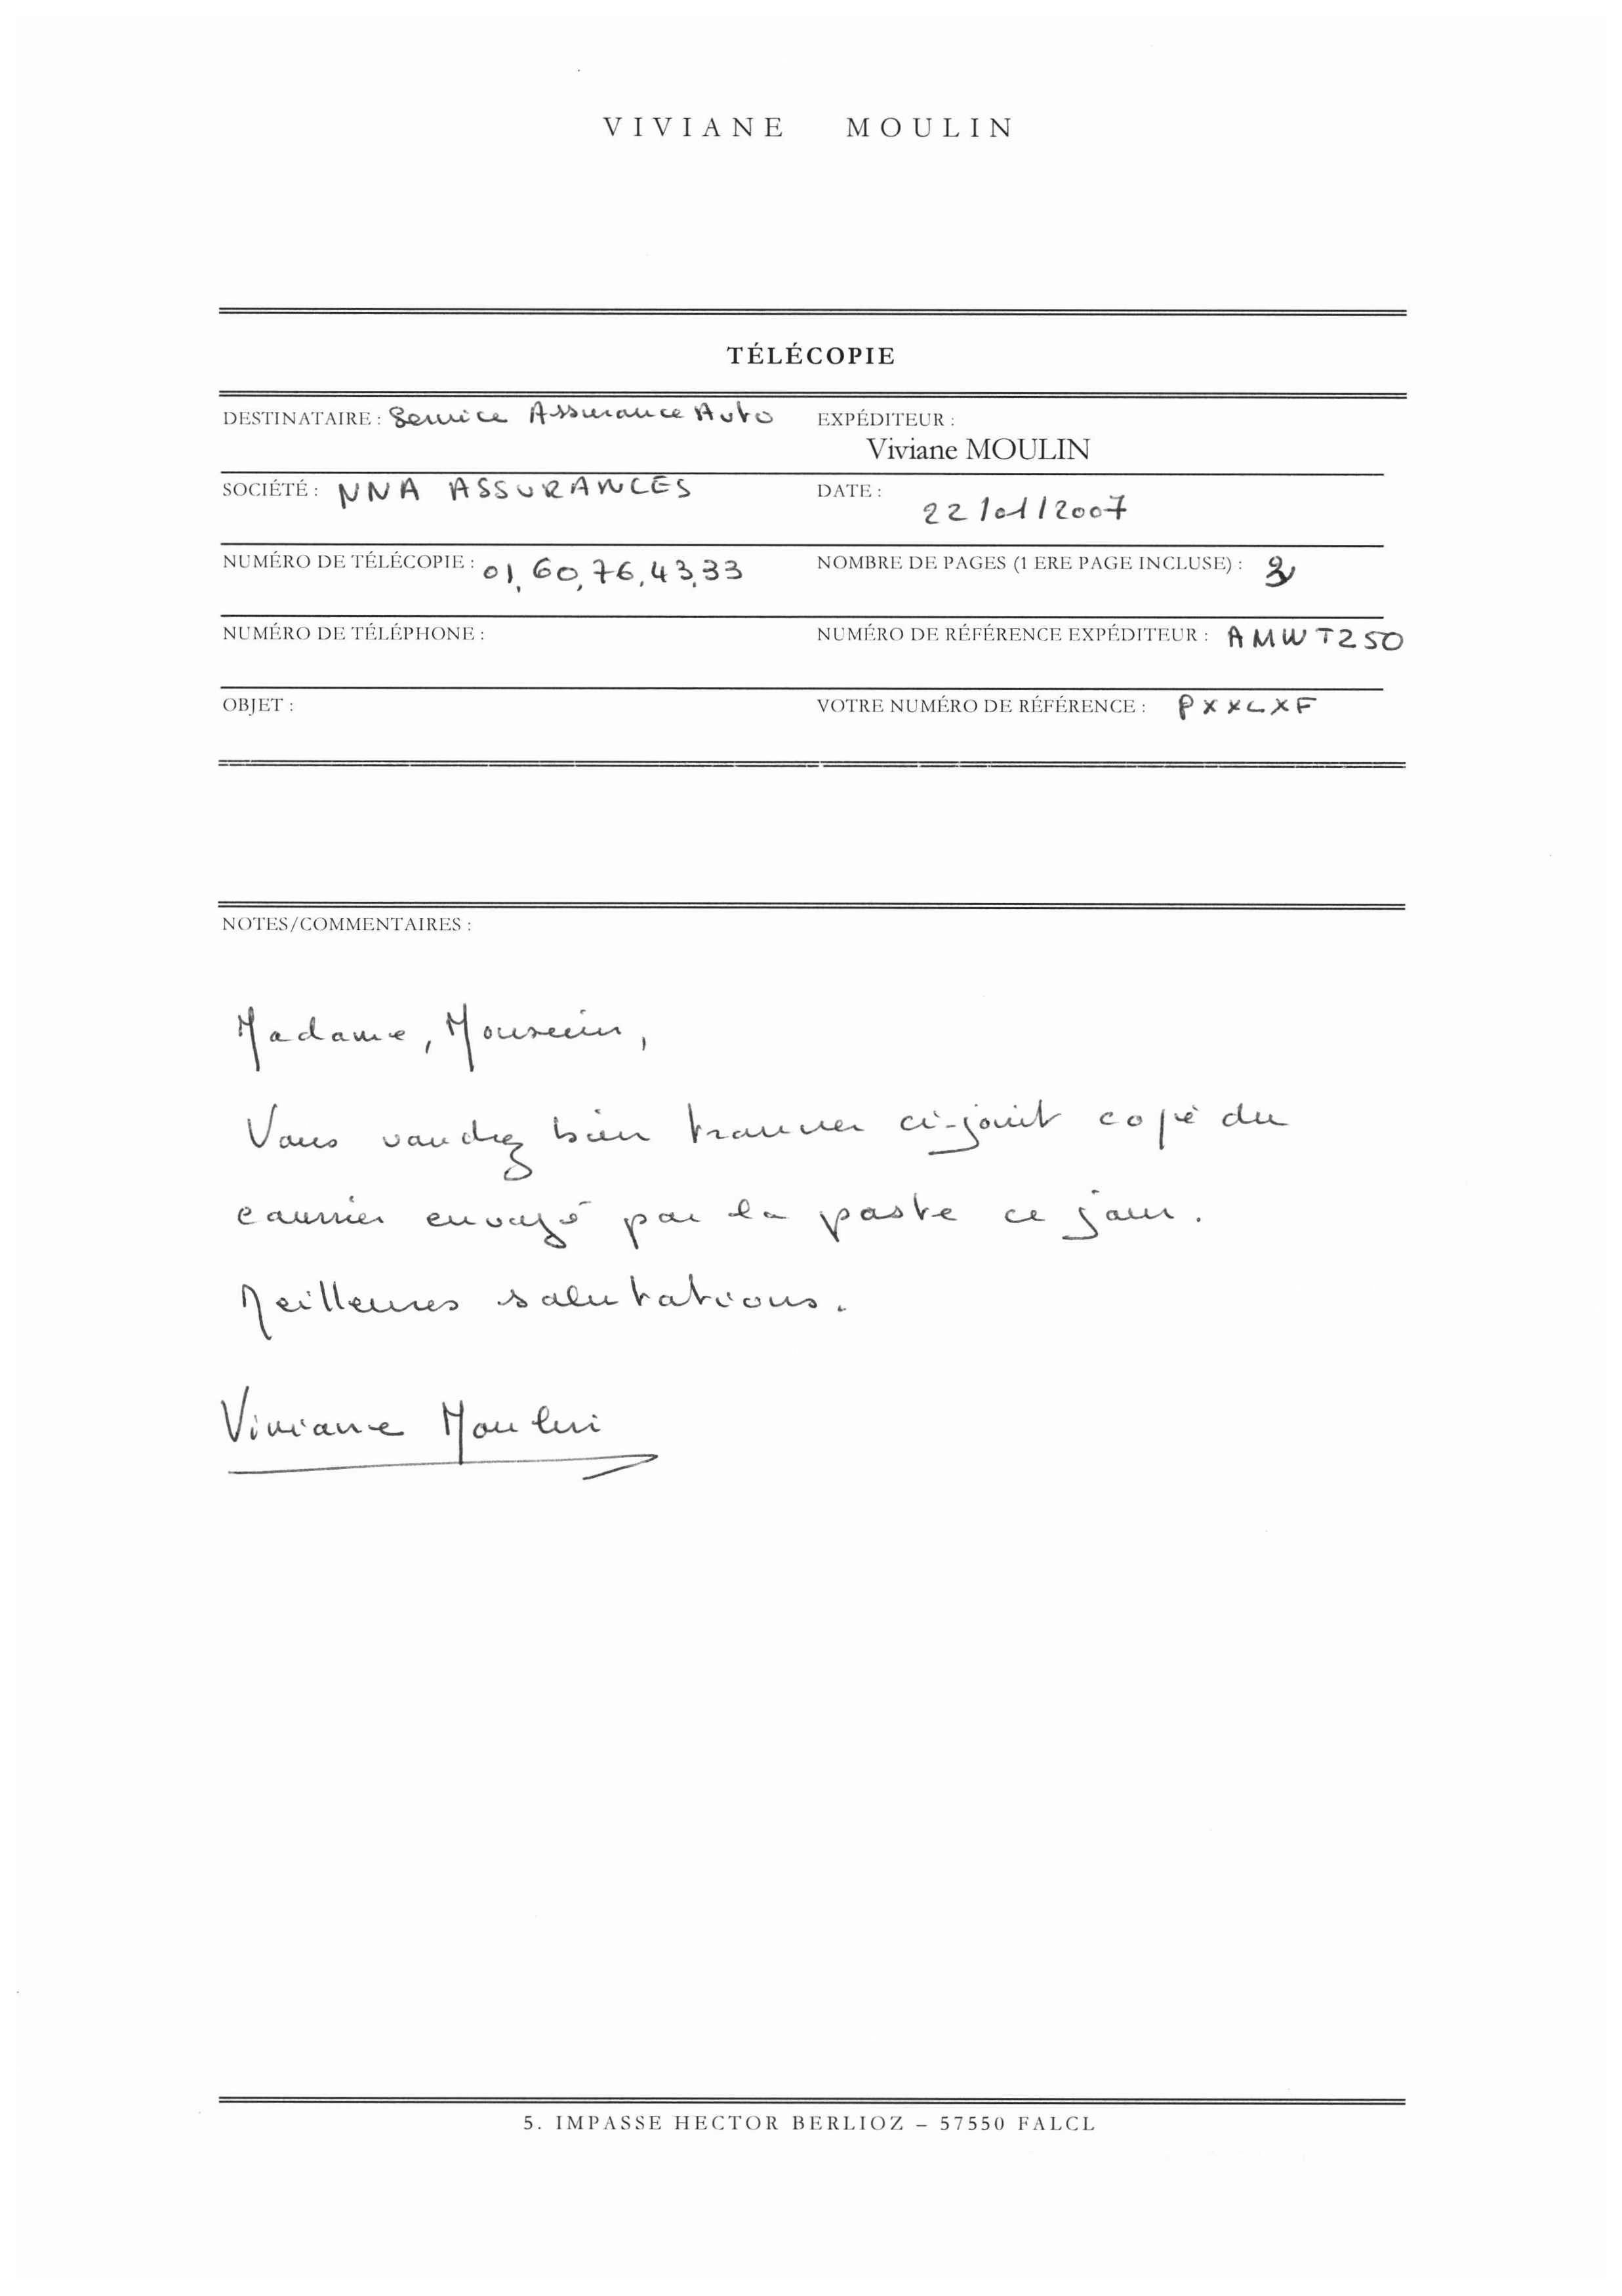 VIVIANE MOULIN
TÉLÉCOPIE
DESTINATAIRE : Service Assurance Auto
EXPÉDITEUR :
Viviane MOULIN
SOCIÉTÉ : NNA ASSURANCES
DATE :
22/01/2007
NUMÉRO DE TÉLÉCOPIE : 01.60.76.43.33
NOMBRE DE PAGES (1 ERE PAGE INCLUSE) :
NUMÉRO DE TÉLÉPHONE :
NUMÉRO DE RÉFÉRENCE EXPÉDITEUR : AMWT250
OBJET :
VOTRE NUMÉRO DE RÉFÉRENCE : PXXLXF
NOTES/COMMENTAIRES :
Madame, Monsieur,
Vous voudrez bien trouver ci-joint copie du
courrier envoyé par la poste ce jour.
Meilleures salutations.
Viviane Moulin
5. IMPASSE HECTOR BERLIOZ – 57550 FALCL